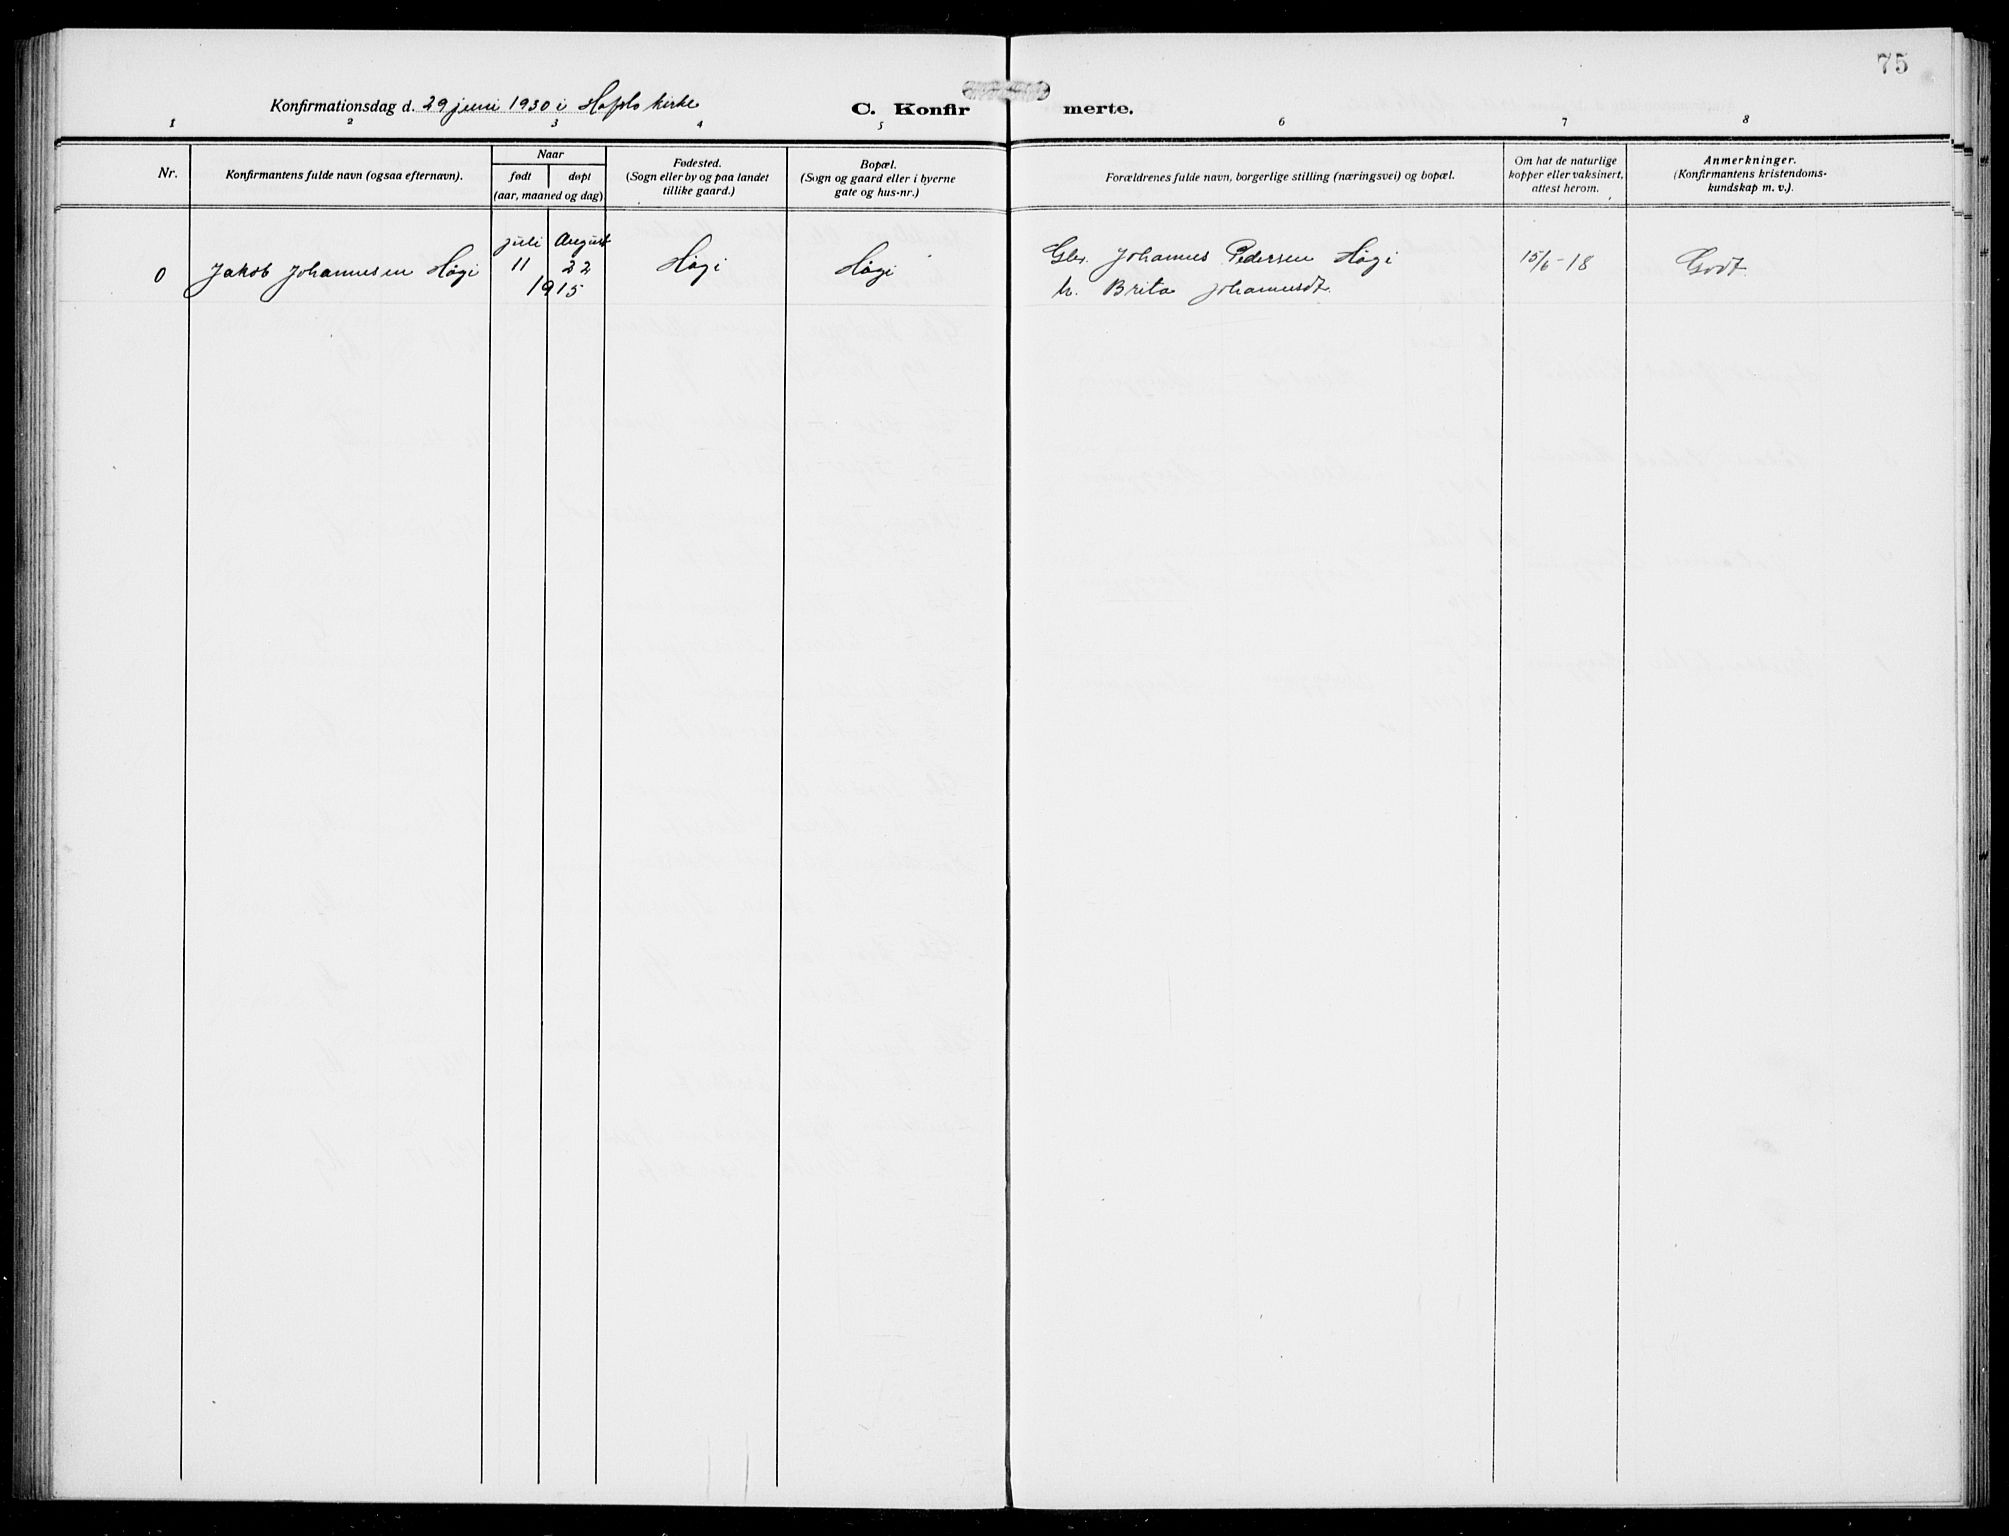 75
Konfirmationsdag d. 29 juni 1930 i Hafslo kirke
C. Konfirmerte.
1 2 3 4 5 6 7 8
Nr.
Konfirmantens fulde navn (ogsaa efternavn).
Naar
født døpt
(aar, maaned og dag)
Fødested.
(Sogn eller by og paa landet
tillike gaard.)
Bopæl.
(Sogn og gaard eller i byerne
gate og hus-nr.)
Forældrenes fulde navn, borgerlige stilling (næringsvei) og bopæl.
Om hat de naturlige
kopper eller vaksinert,
attest herom.
Anmerkninger.
(Konfirmantens kristendoms-
kundskap m. v.).
juli August
0 Jakob Johannesen Høgi 11 22 Høgi Høgi Gbr. Johannes Pedersen Høgi 15/6-18 Godt
1915 h. Brita Johannesdt.